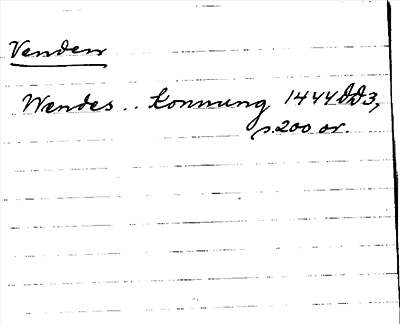 Venden
Wendes .. Konnung 1444 DD3,
s. 200 or.